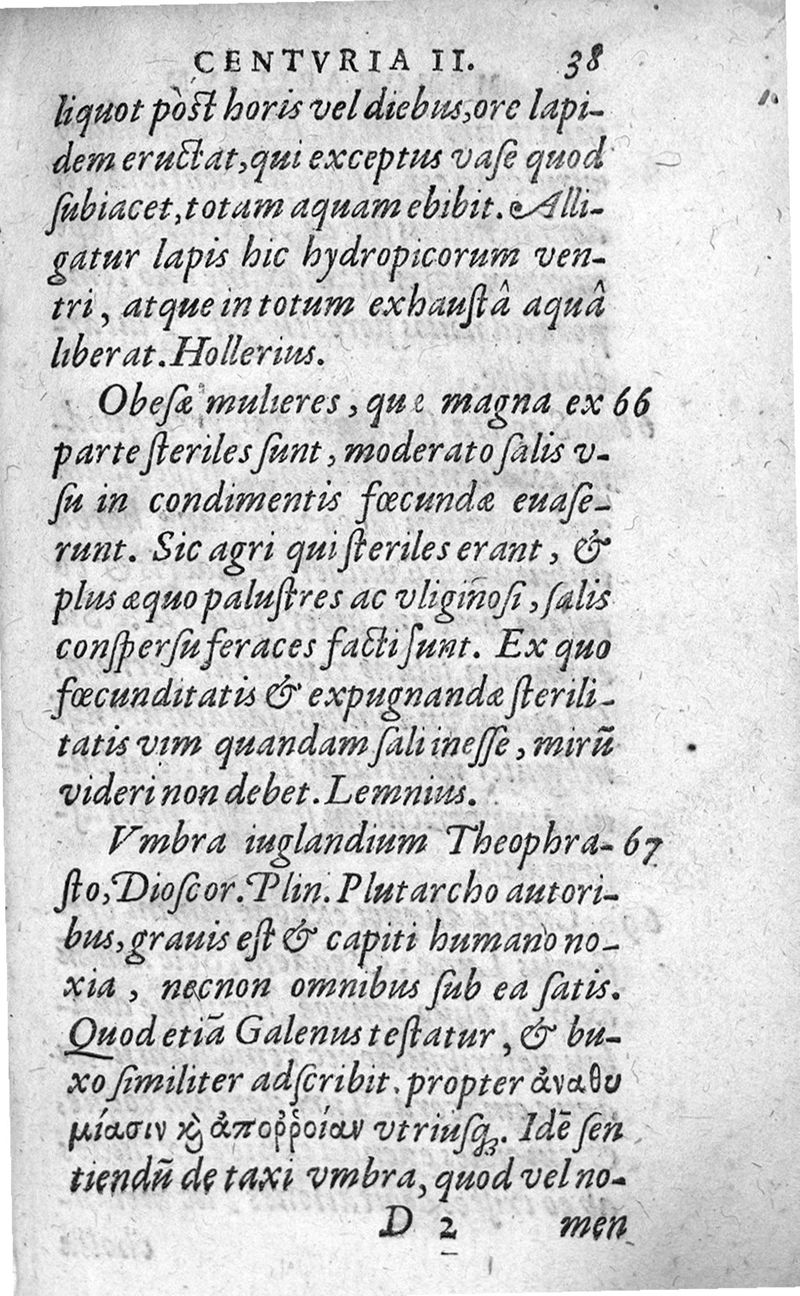 CENTVRIA II. 38
liquot pòst horis vel diebus, ore lapi-
dem eructat, qui exceptus vase quod
subiacet, totam aquam ebibit. Alli-
gatur lapis hic hydropicorum ven-
tri, atque in totum exhaustâ aquâ
liberat. Hollerius.
Obesæ mulieres, quæ magna ex 66
parte steriles sunt, moderato salis v-
su in condimentis fœcundæ euase-
runt. Sic agri qui steriles erant, &
plus æquo palustres ac vliginosi, salis
conspersu feraces facti sunt. Ex quo
fœcunditatis & expugnandæ sterili-
tatis vim quandam sali inesse, mirũ
videri non debet. Lemnius.
Vmbra iuglandium Theophra- 67
sto, Dioscor. Plin. Plutarcho autori-
bus, grauis est & capiti humano no-
xia, necnon omnibus sub ea satis.
Quod etiã Galenus testatur, & bu-
xo similiter adscribit. propter ἀναθυ
μίασιν ϗ̀ ἀποῤῥοίαν vtriusq;. Idẽ sen
tiendũ de taxi vmbra, quod vel no-
D 2 men